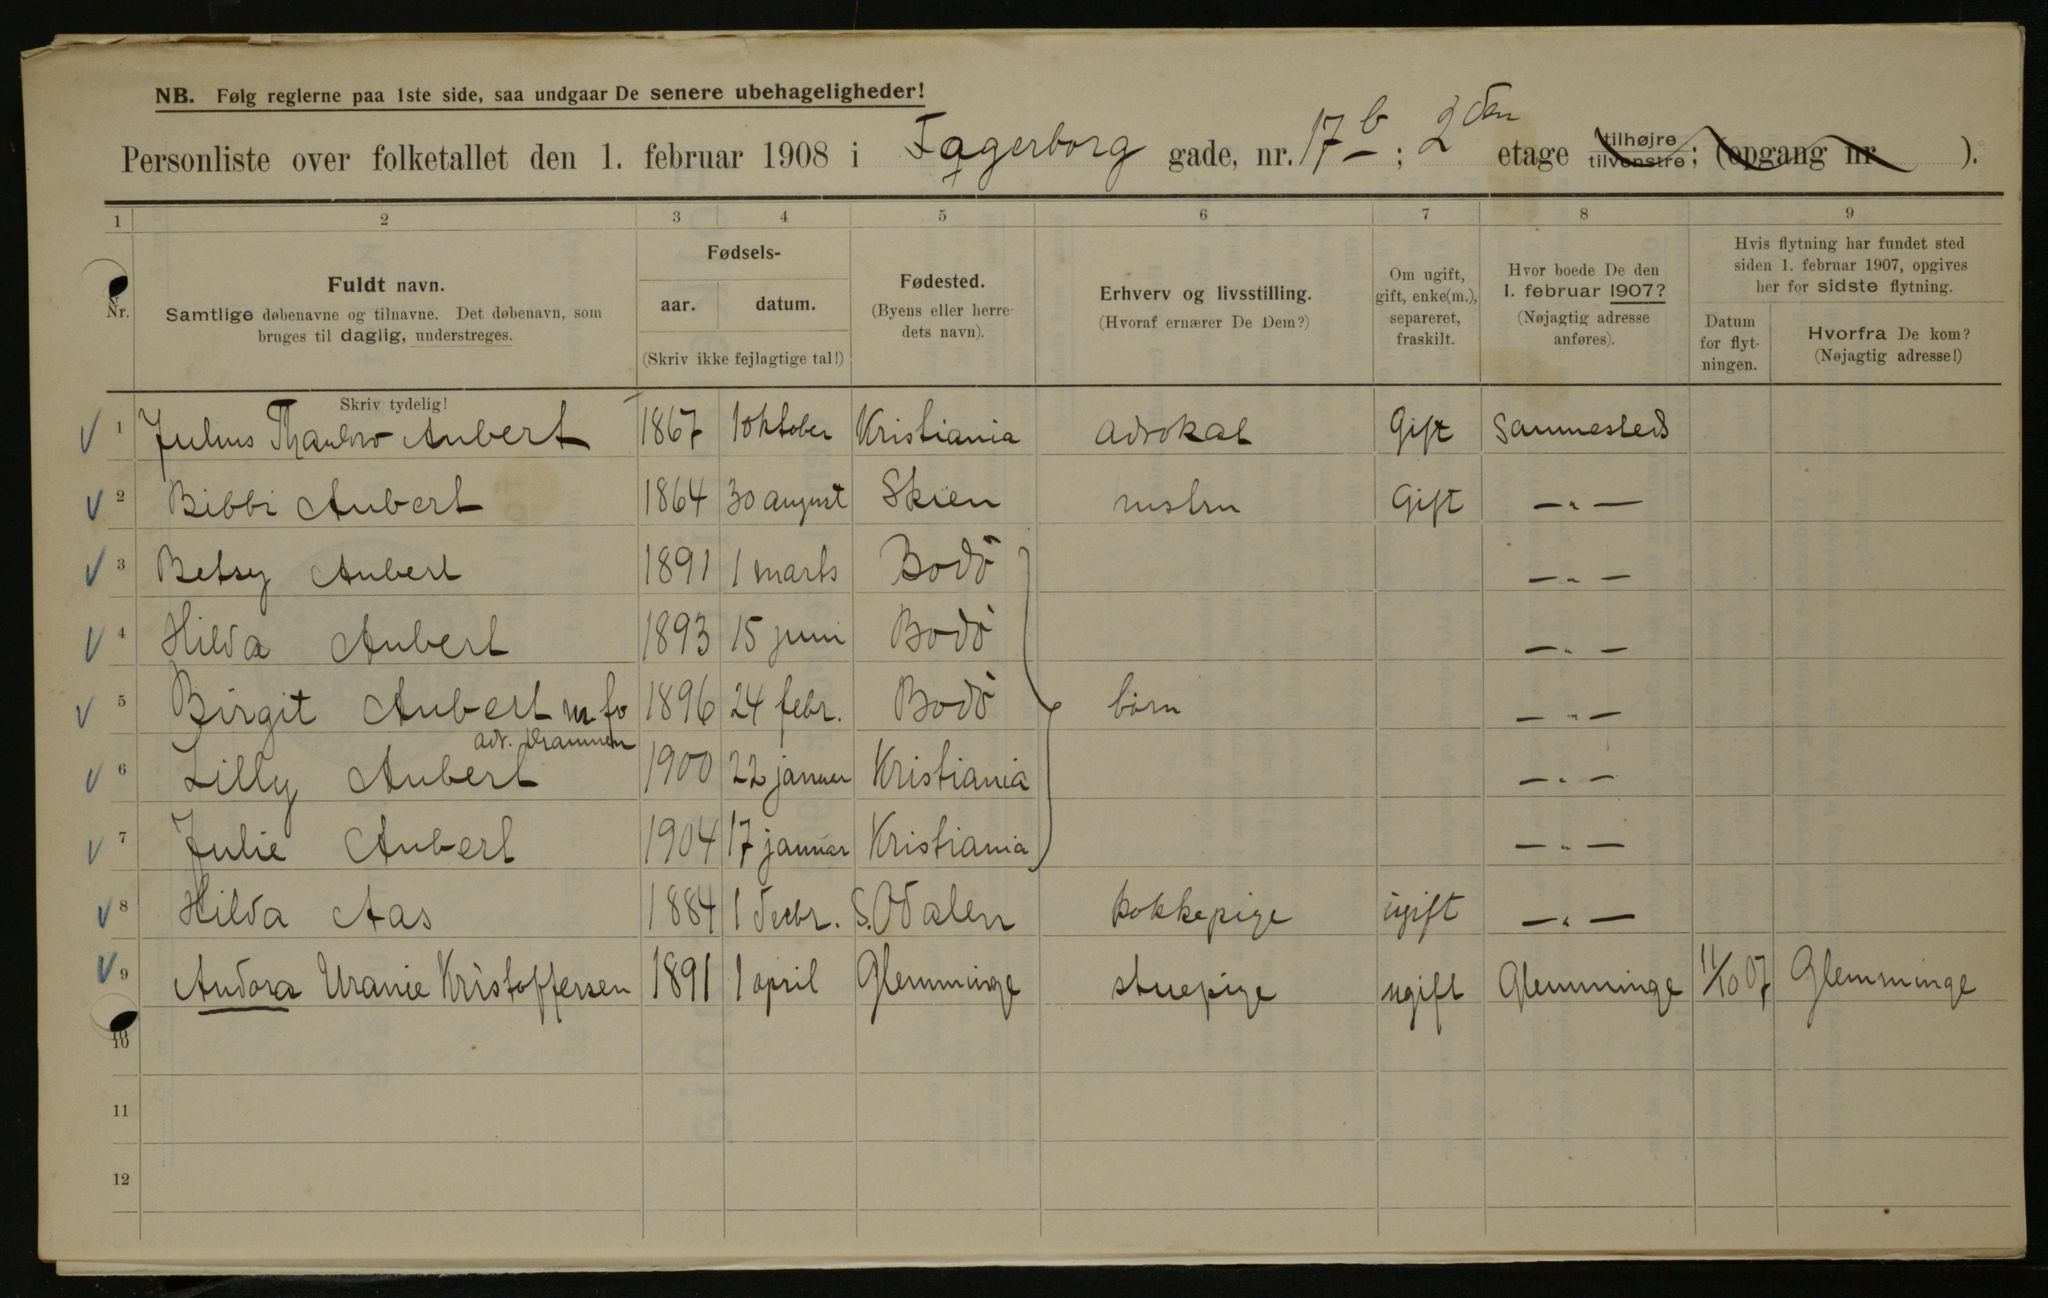 NB. Følg reglerne paa 1ste side, saa undgaar De senere ubehageligheder!
Personliste over folketallet den 1. februar 1908 i Fagerborg gade, nr. 17 b; 2den etage tilhøjre tilvenstre; (opgang nr ).
1 2 3 4 5 6 7 8 9
Nr.
Fuldt navn.
Samtlige døbenavne og tilnavne. Det døbenavn, som
bruges til daglig, understreges.
Skriv tydelig!
Fødsels-
aar. datum.
(Skriv ikke fejlagtige tal!)
Fødested.
(Byens eller herre-
dets navn).
Erhverv og livsstilling.
(Hvoraf ernærer De Dem?)
Om ugift,
gift, enke(m.),
separeret,
fraskilt.
Hvor boede De den
1. februar 1907?
(Nøjagtig adresse
anføres).
Hvis flytning har fundet sted
siden 1. februar 1907, opgives
her for sidste flytning.
Datum
for flyt-
ningen.
Hvorfra De kom?
(Nøjagtig adresse!)
1 Julius Thaulow Aubert 1867 1 oktober Kristiania advokat Gift Sammesteds
2 Bibbi Aubert 1864 30 august Skien hustru Gift — " —
3 Betsy Aubert 1891 1 marts Bodö — " —
4 Hilda Aubert 1893 15 juni Bodö — " —
5 Birgit Aubert m fv 1896 24 febr. Bodö börn — " —
adr. Drammen
6 Lilly Aubert 1900 22 januar Kristiania — " —
7 Julie Aubert 1904 17 januar Kristiania — " —
8 Hilda Aas 1884 1 decbr. S. Odalen kokkepige ugift — " —
9 Andora Uranie Kristoffersen 1891 1 april Glemminge stuepige ugift Glemminge 11/10 07 Glemminge
10
11
12